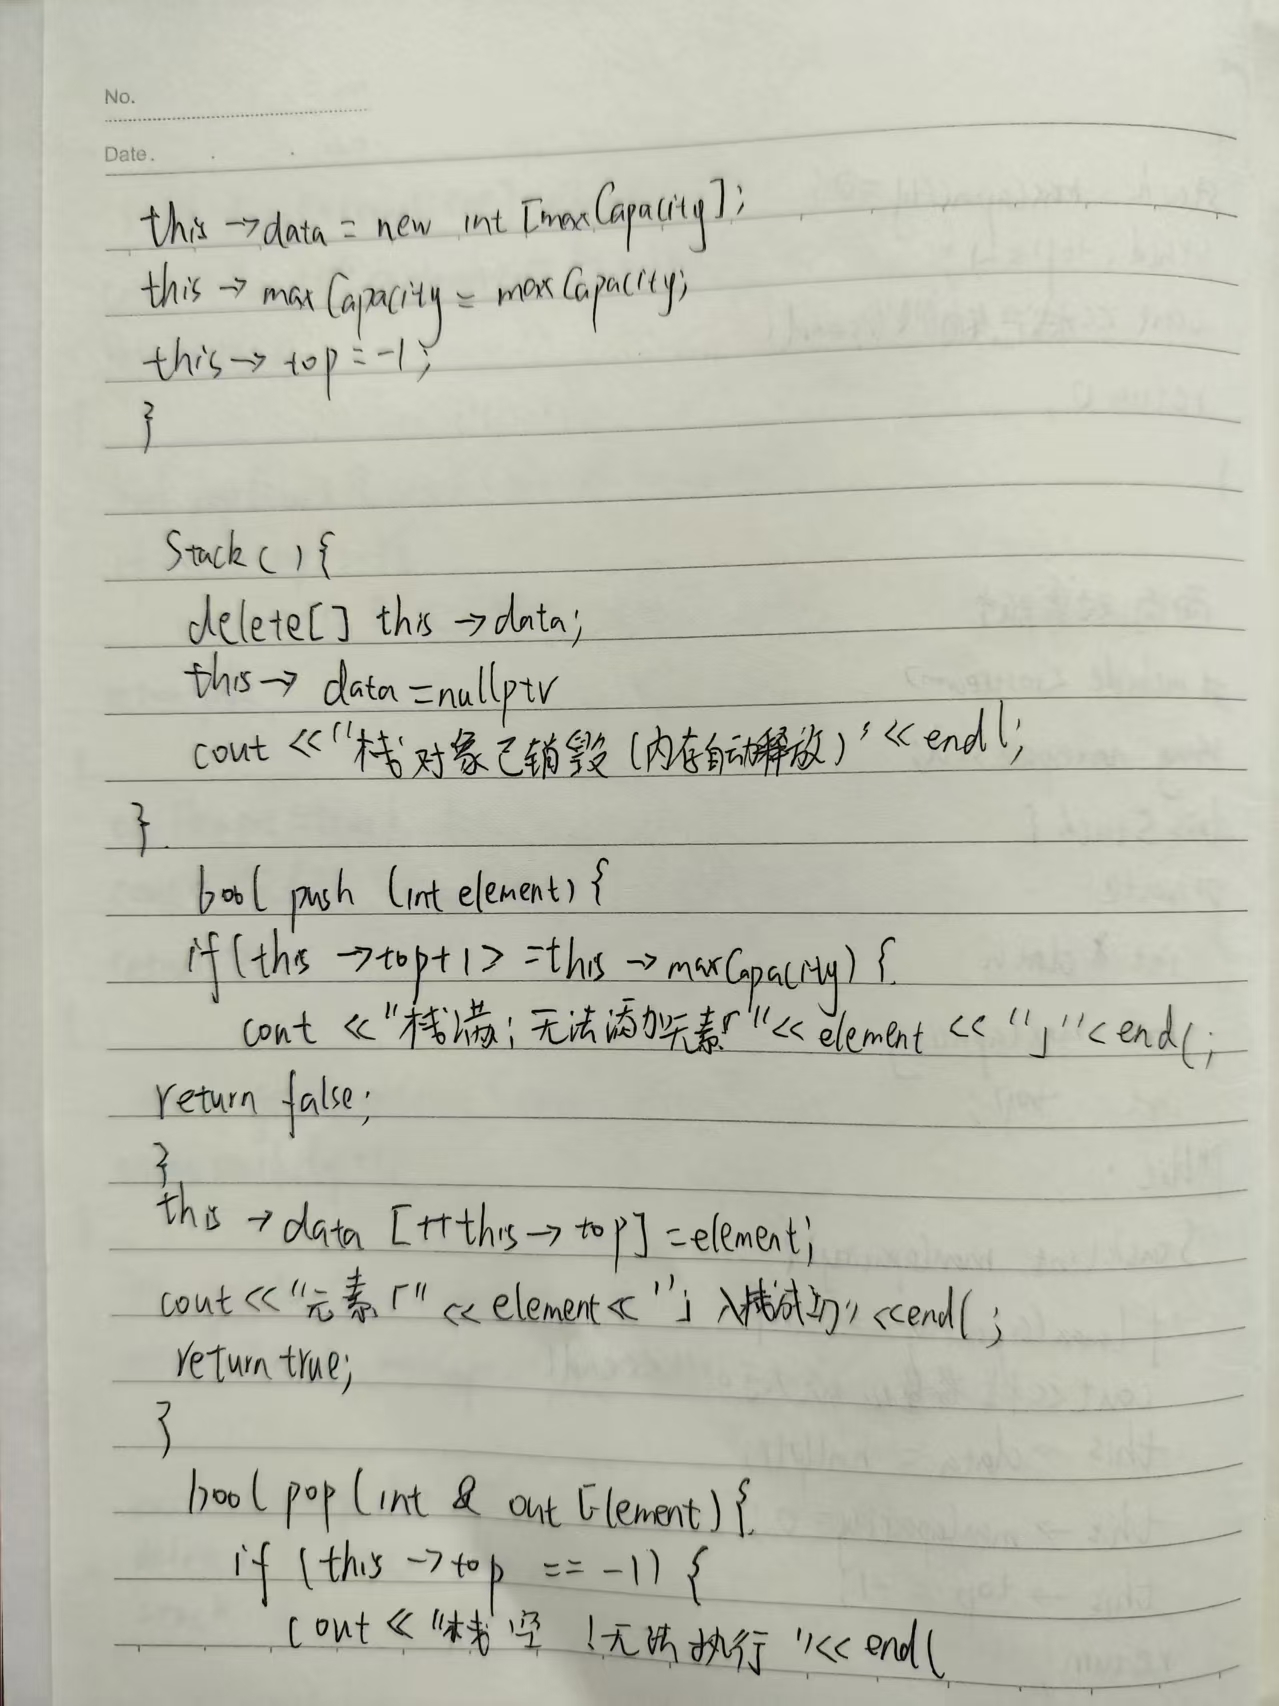 No.
Date.
this->data = new int [maxCapacity];
this-> maxCapacity = maxCapacity;
this-> top = -1;
}
Stack() {
delete[] this->data;
this-> data = nullptr
cout <<"栈对象已销毁(内存自动释放)"<< endl;
}
bool push (int element) {
if (this ->top+1 > =this -> maxCapacity) {
cout << "栈满;无法添加元素「"<< element << "」"< endl;
return false;
}
this -> data [++this-> top] = element;
cout << "元素「" << element << "」入栈成功" <<endl;
return true;
}
bool pop (int & out Element) {
if (this ->top == -1) {
cout << "栈空!无法执行"<< endl